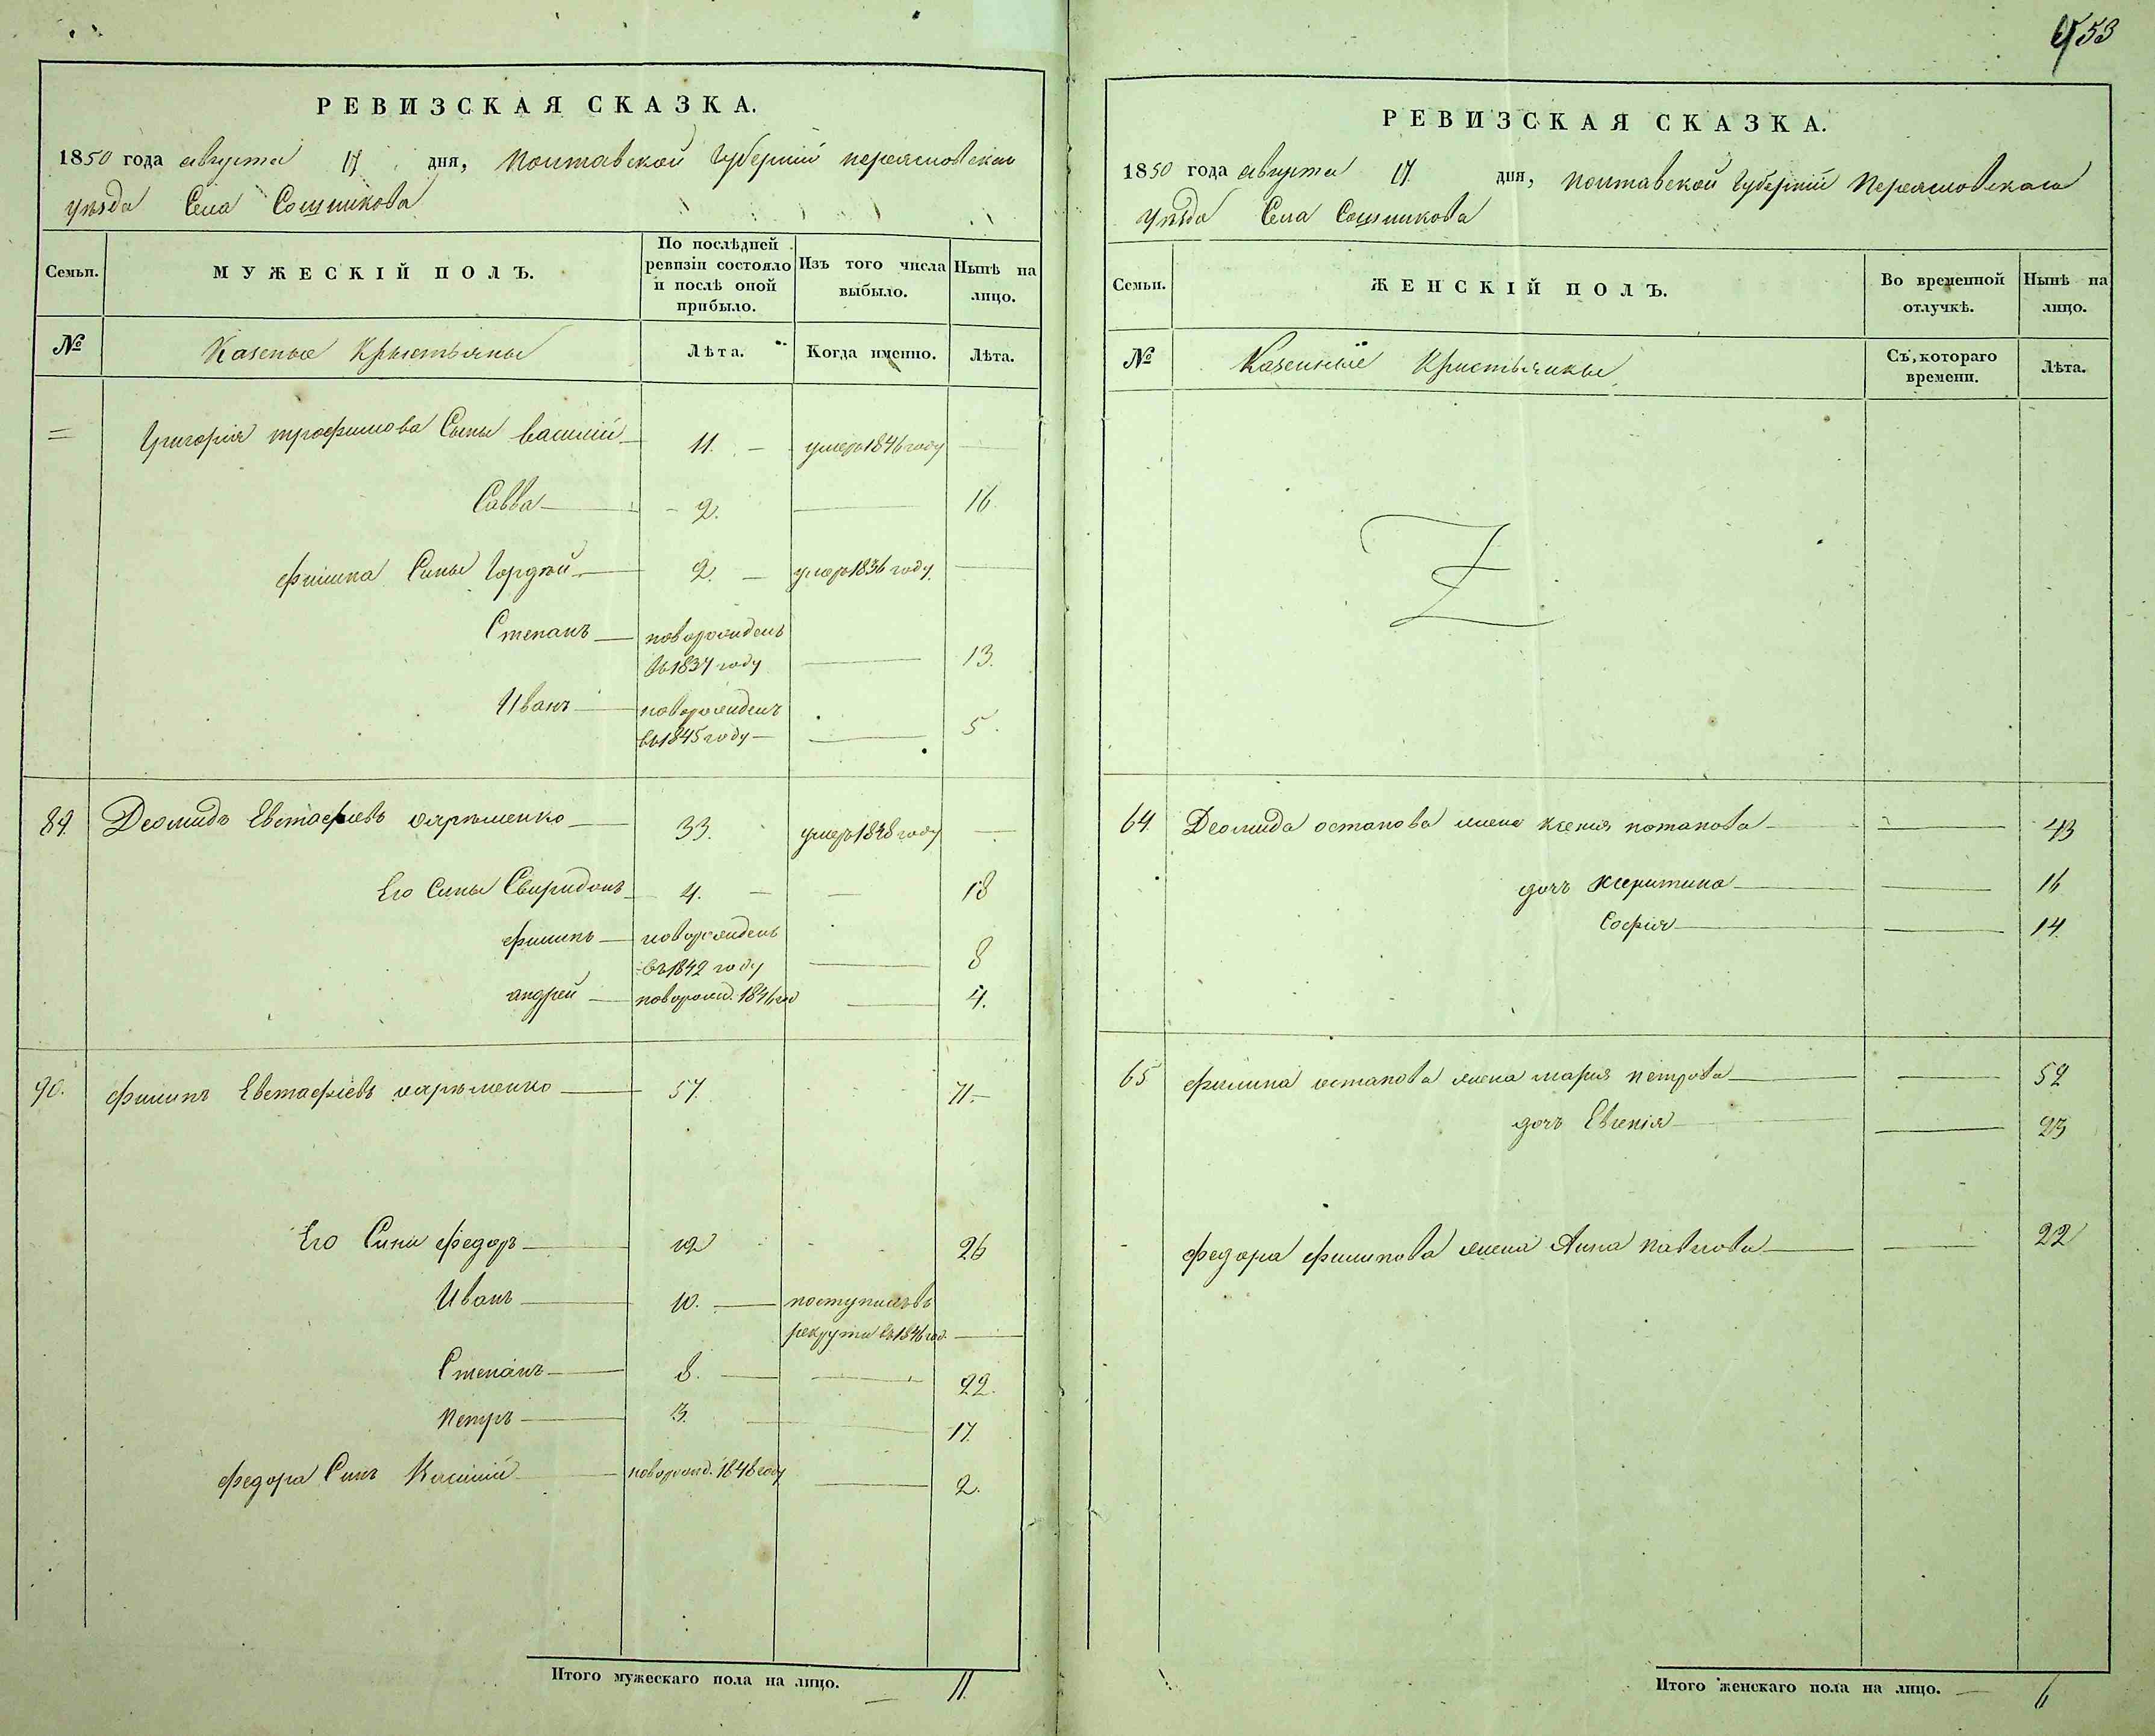 953
РЕВИЗСКАЯ СКАЗКА.
1850 года августа 17 дня, Полтавской Губерніи переясловскаго
уѣзда Села Сошникова
Семьи. МУЖЕСКІЙ ПОЛЪ. По послѣдней ревизіи состояло и послѣ оной прибыло. Изъ того числа выбыло. Нынѣ на лицо.
№ Казеные Крыстьяны Лѣта. Когда именно. Лѣта.
= Григорія трофимова Сыны василій 11. умеръ 1846 году
Савва 2. 16.
филипа Сины Гордѣй 2. умеръ 1836 году
Степанъ новорожденъ
въ 1837 году 13.
Иванъ новорожденъ
въ 1845 году 5.
89. Деомидъ Евстафіевъ 33. умеръ 1848 году
Его Сины Свиридонъ 4. 18
филипъ новорожденъ
въ 1842 году 8
андрей новорожд. 1846 год 4.
90. филипъ Евстафіевъ 57. 71.
Его Сини федоръ 12 26
Иванъ 10. поступилъ въ
рекруты въ 1846 год.
Степанъ 8. 22.
Петръ 3. 17.
федора Синъ новорожд. 1848 году 2.
Итого мужескаго пола на лицо. 11.
РЕВИЗСКАЯ СКАЗКА.
1850 года августа 17. дня, полтавской Губерніи Переясловскаго
уѣзда Села Сошникова
Семьи. ЖЕНСКІЙ ПОЛЪ. Во временной отлучкѣ. Нынѣ на лицо.
№ Казенные Кристьянкы Съ котораго времени. Лѣта.
Z
64. Деомида остапова жена ксенія потапова 43
дочъ 16
Софія 14.
65 филипа остапова жена марія петрова 52
дочъ Евгенія 23
федора филипова жена Анна павлова 22
Итого женскаго пола на лицо. 6